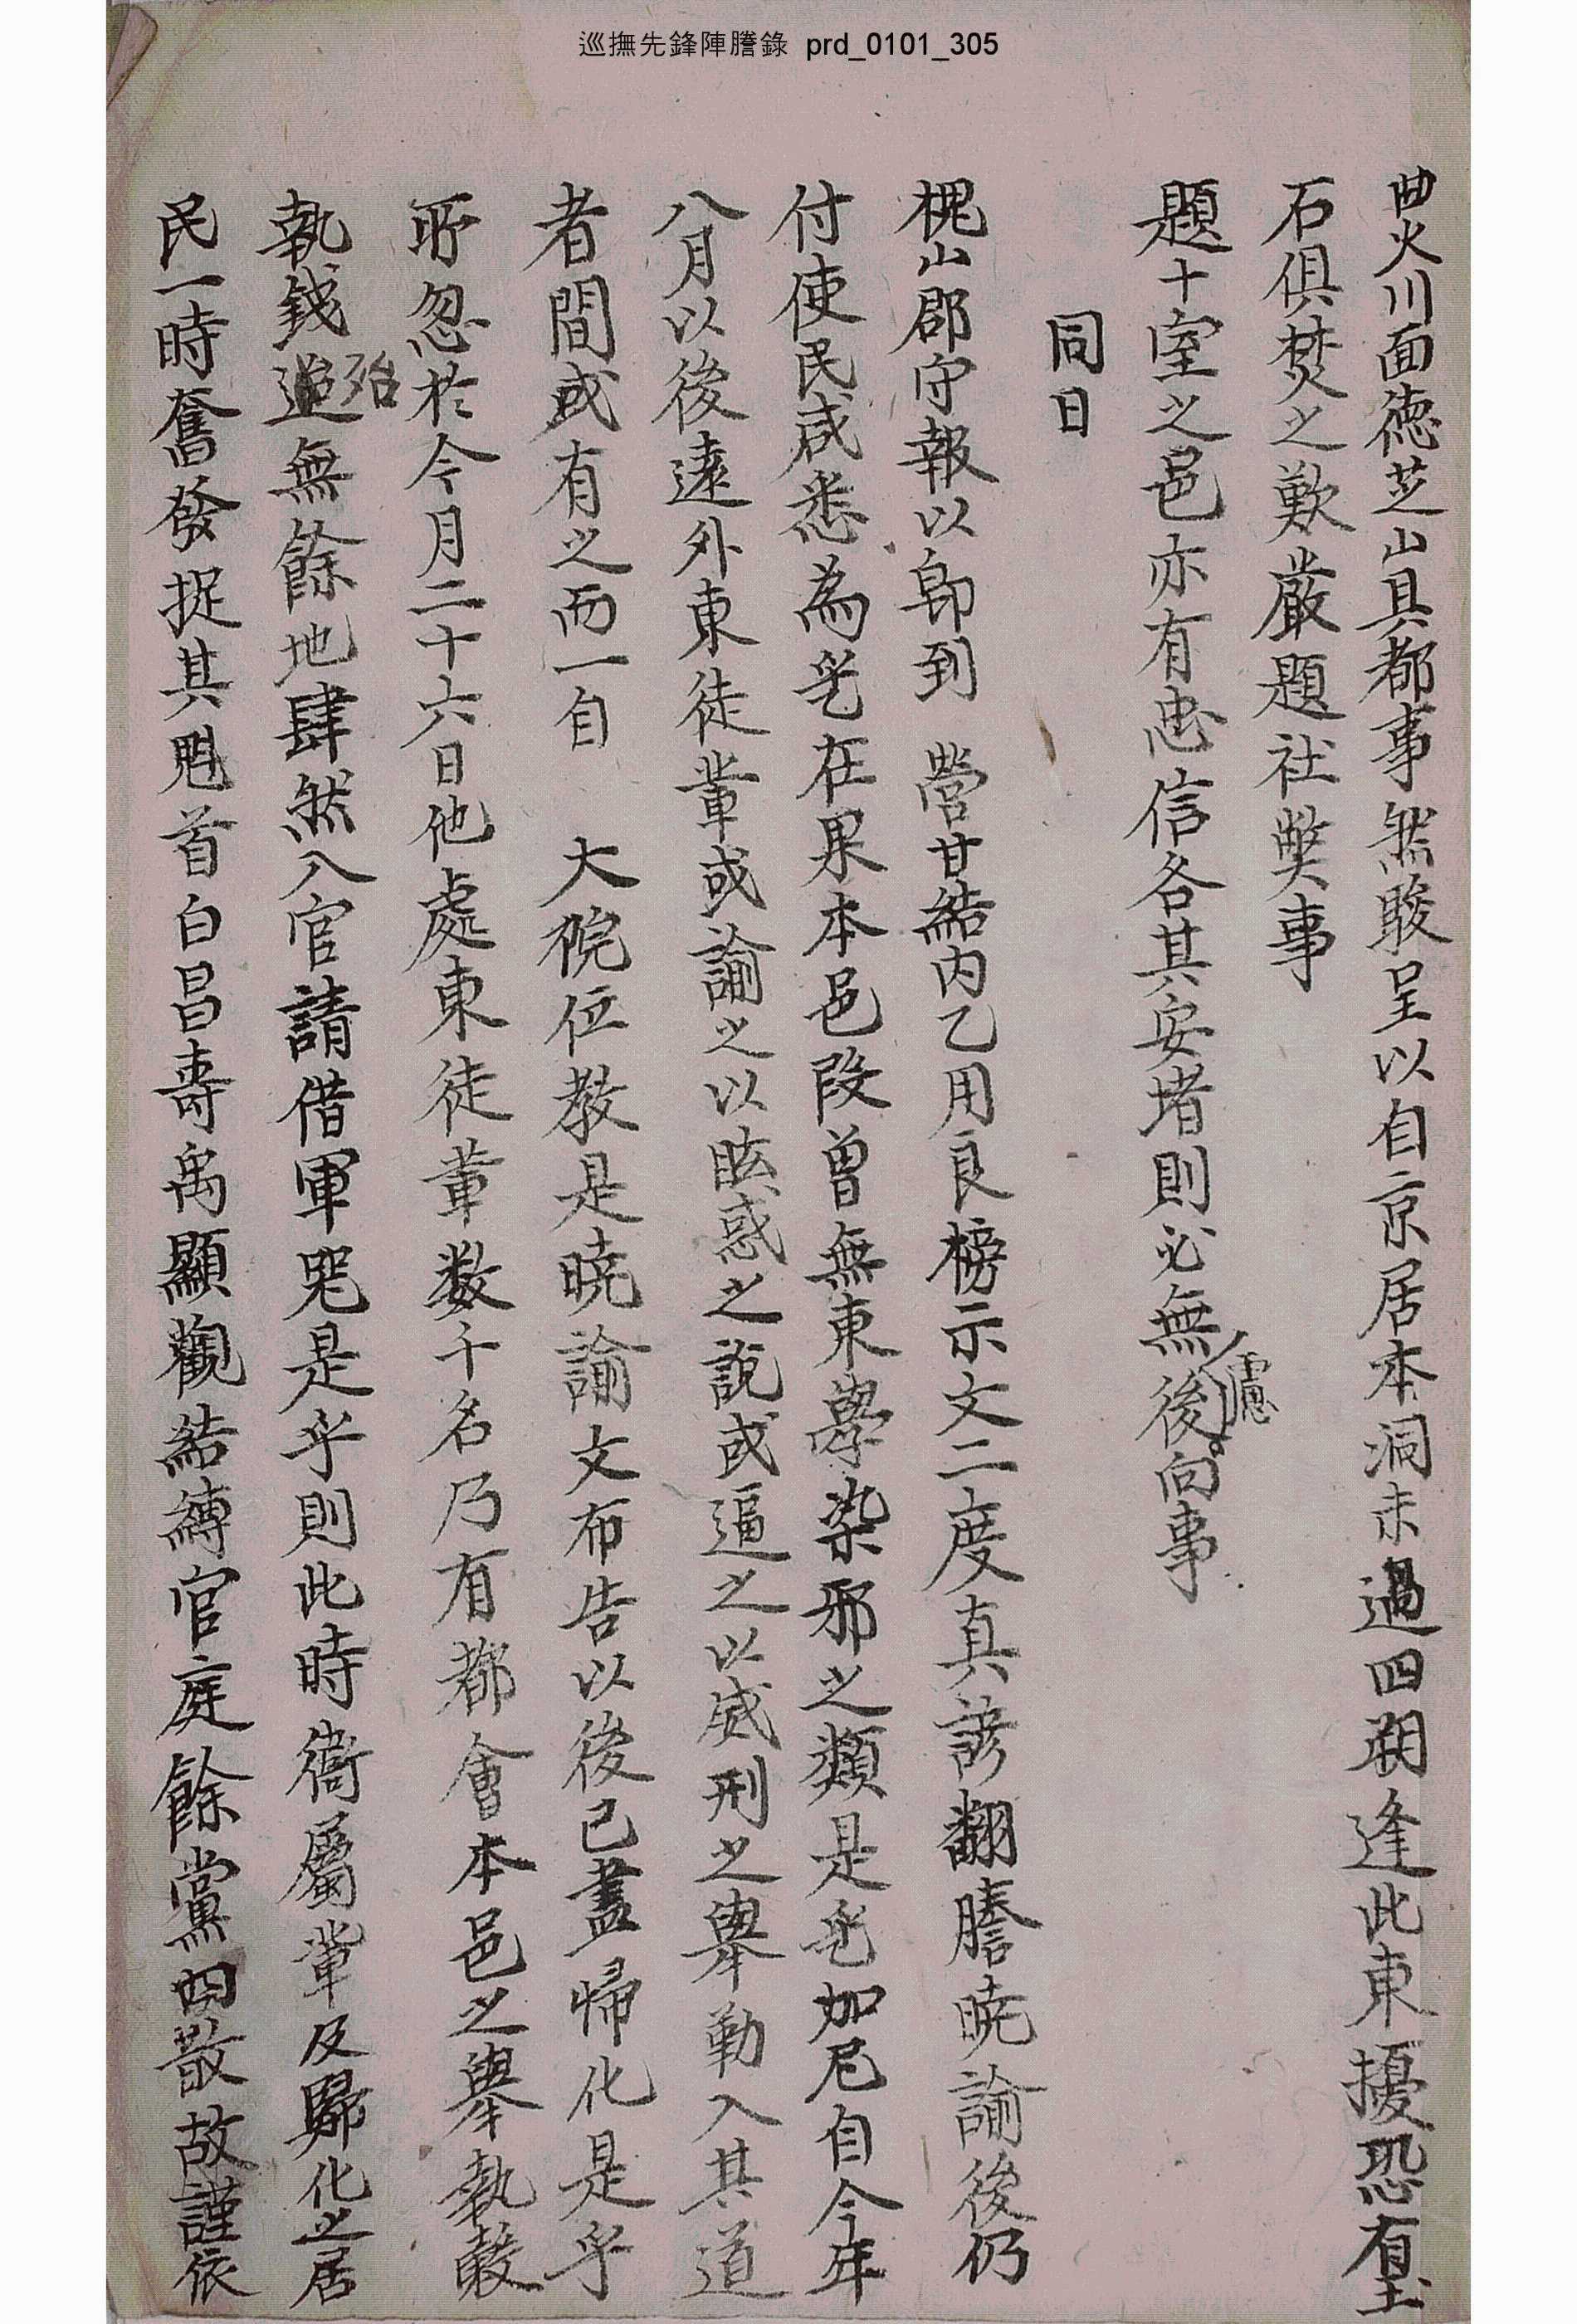 巡撫先鋒陣謄錄 prd_0101_305
曲火川面德芝山具都事然駿呈以自京居本洞未過四朔逢此東擾恐有玉
石俱焚之歎嚴題祛獘事
題十室之邑亦有忠信各其安堵則必無後慮向事
同日
槐山郡守報以卽到 營甘結內乙用良榜示文二度真諺翻謄曉諭後仍
付使民咸悉為乎在果本邑段曾無東學染邪之類是乎加尼自今年
八月以後遠外東徒軰或諭之以眩惑之說或逼之以威刑之擧勒入其道
者間或有之而一自 大院位教是曉諭文布告以後已盡歸化是乎
所忽於今月二十六日他處東徒軰数千名乃有都會本邑之擧執穀
執錢殆無餘地肆然入官請借軍器是乎則此時衙屬軰及歸化之居
民一時奮發捉其魁首白昌壽禹顯觀結縛官庭餘黨四散故謹依